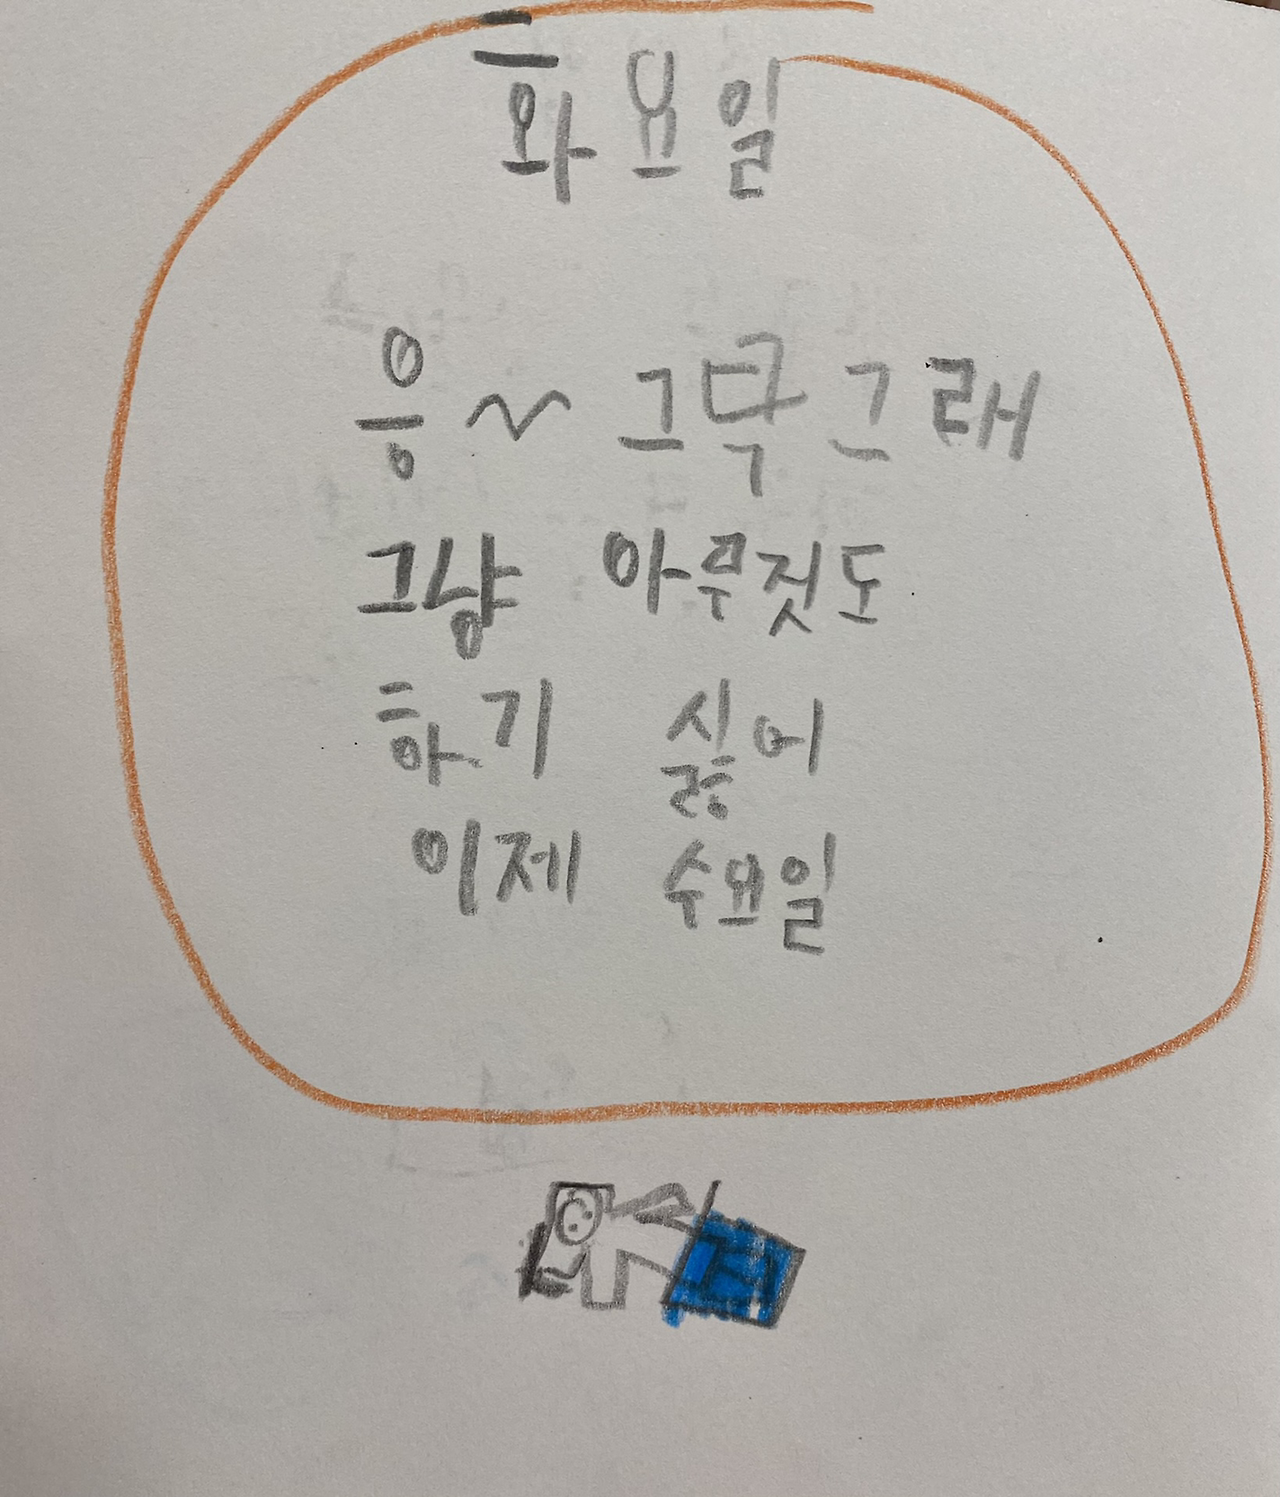 화요일
응~ 그닥 그래
그냥 아무것도
하기 싫어
이제 수요일